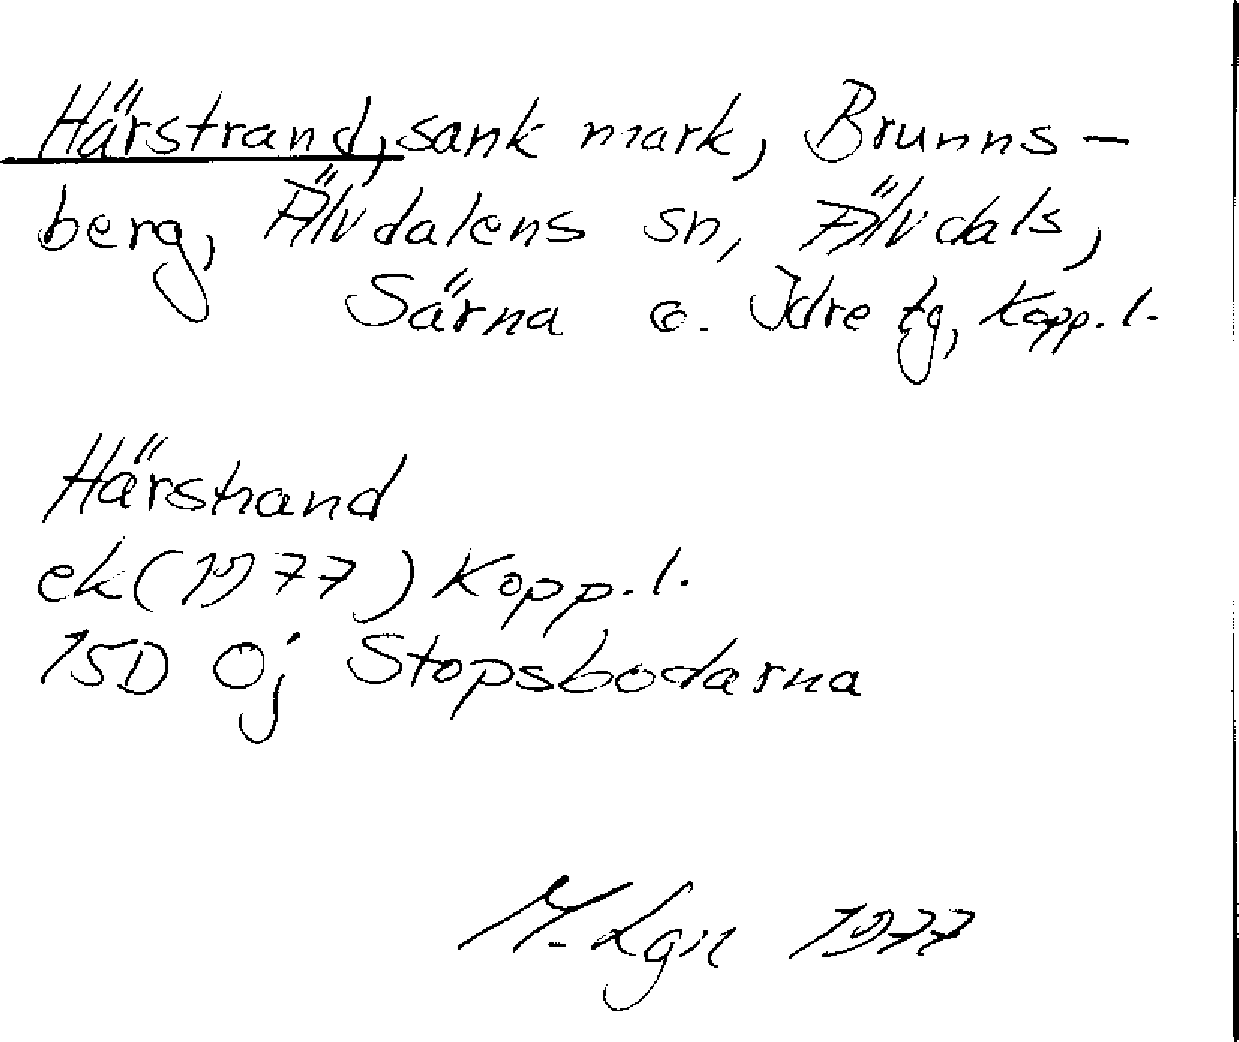 Härstrand, sank mark, Brunns-
berg, Älvdalens sn, Älvdals,
Särna o. Idre tg, Kopp. l.
Härstrand
ek (1977) Kopp. l.
15D 0j Stopsbodarna
M. Lgn 1977